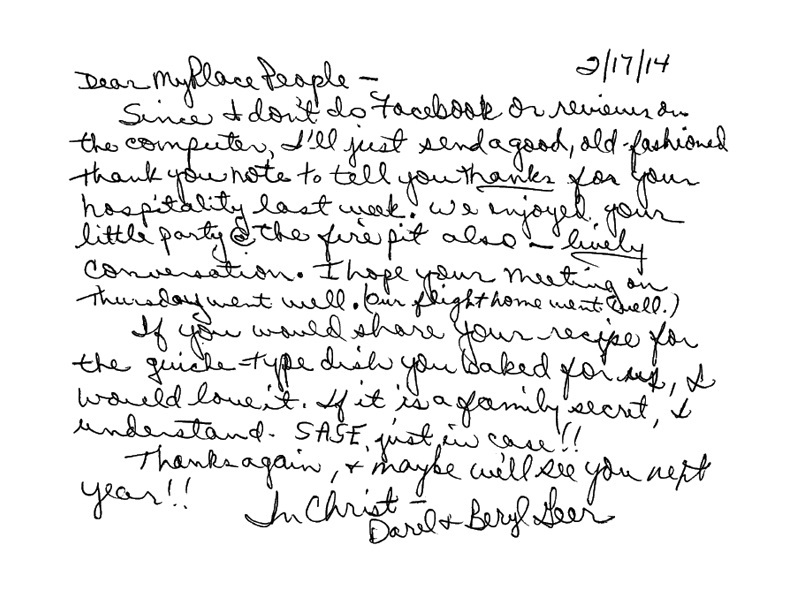 2/17/14
Dear MyPlace People –
Since I don't do Facebook or reviews on
the computer, I'll just send a good, old-fashioned
thank you note to tell you thanks for your
hospitality last week. We enjoyed your
little party @ the fire pit also – lively
conversation. I hope your meeting on
Thursday went well. (Our flight home went well.)
If you would share your recipe for
the quiche-type dish you baked for us, I
would love it. If it is a family secret, I
understand. SASE, just in case!!
Thanks again, & maybe we'll see you next
year!!
In Christ –
Darel & Beryl Geer